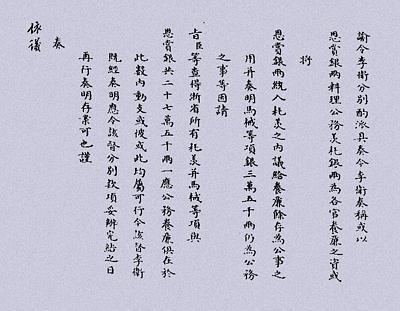 諭令李衛分別酌派具奏今李衛奏稱或以
恩賞銀兩料理公務羡耗銀兩為各官養廉之資或
将
恩賞銀兩統入耗羡之內議給養廉餘存為公事之
用并奏明馬械等項銀三萬五千兩仍為公務
之事等因請
旨臣等查得浙省所有耗羡并馬械等項與
恩賞銀共二十七萬五千兩一應公務養廉俱在於
此數內動支或彼或此均屬可行令該督李衛
既經奏明應令該督分別款項妥辦完結之日
再行奏明存案可也謹
奏
依議